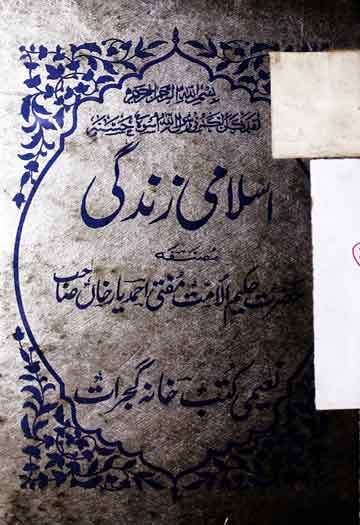 بسم الله الرحمن الرحيم
لقد كان لكم في رسول الله اسوة حسنة
اسلامی زندگی
مصنفہ
حضرت حکیم الامت مفتی احمد یار خاں صاحب
نعیمی کتب خانہ گجرات